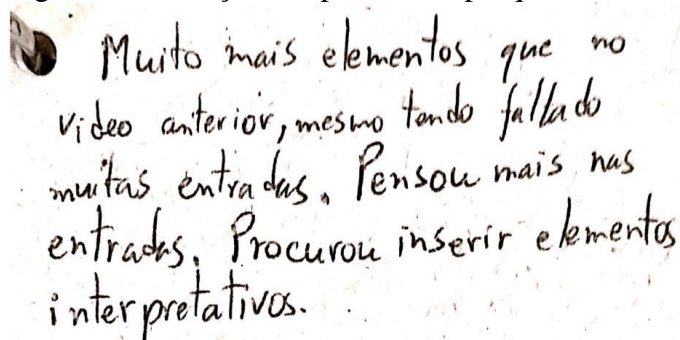 Muito mais elementos que no
video anterior, mesmo tendo fallado
muitas entradas. Pensou mais nas
entradas. Procurou inserir elementos
interpretativos.